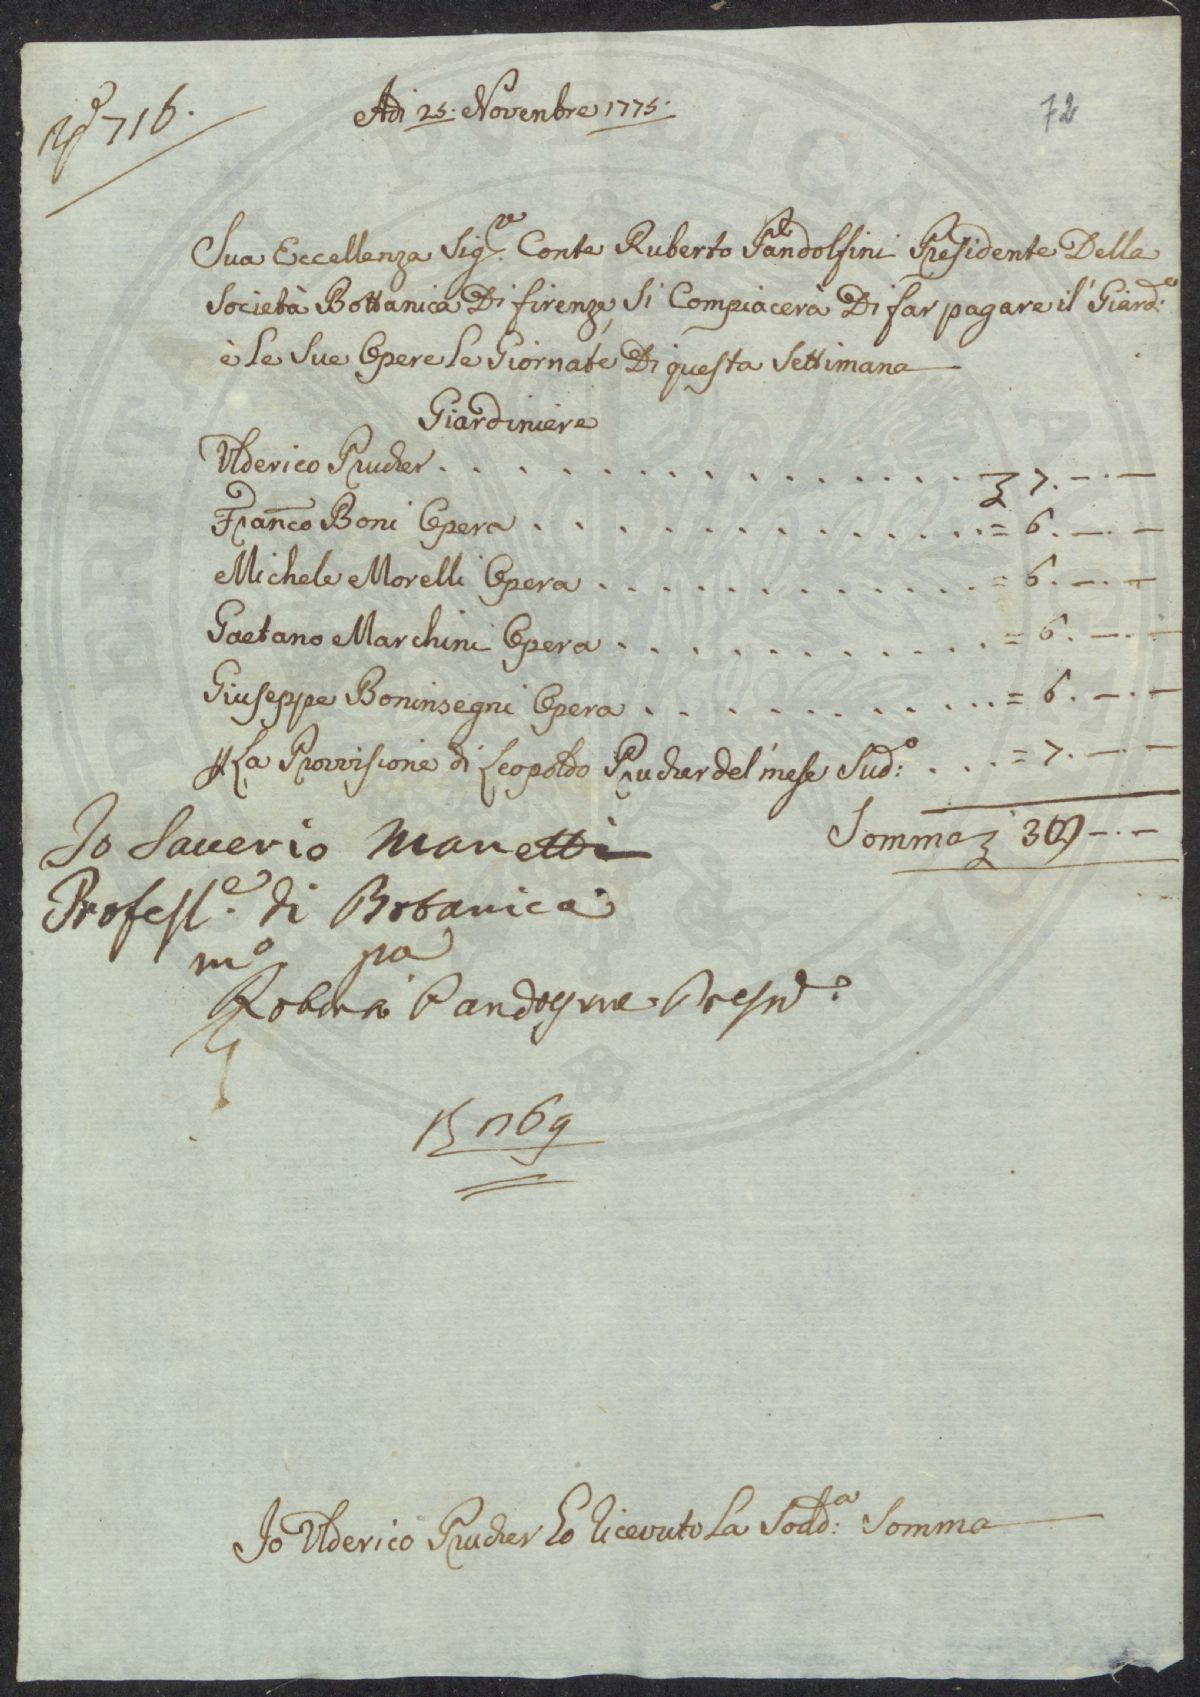 716.
Adi 25. Novenbre 1775.
72
Sua Eccellenza Sigre. Conte Ruberto Pandolfini Presidente Della
Società Bottanica Di firenze, Si Compiacerà Di far pagare il Giardo:
è le Sue Opere le Giornate Di questa Settimana
Giardiniere
Ulderico Prucher . . . . . . . . . . . . . . 7. – . –
Franco Boni Opera . . . . . . . . . . . . = 6. – . –
Michele Morelli Opera . . . . . . . . . . = 6. – . –
Gaetano Marchini Opera . . . . . . . . . . = 6. – . –
Giuseppe Boninsegni Opera . . . . . . . . . = 6. – . –
La Provvisione di Leopoldo Prucher del mese Sudo: . . . = 7. – . –
Somma 38 – . –
Io Saverio Manetti
Professe. di Botanica
mo pa
Roberto Pandolfini Presid.
1769
Io Ulderico Prucher ho ricevuto La Sodda: Somma